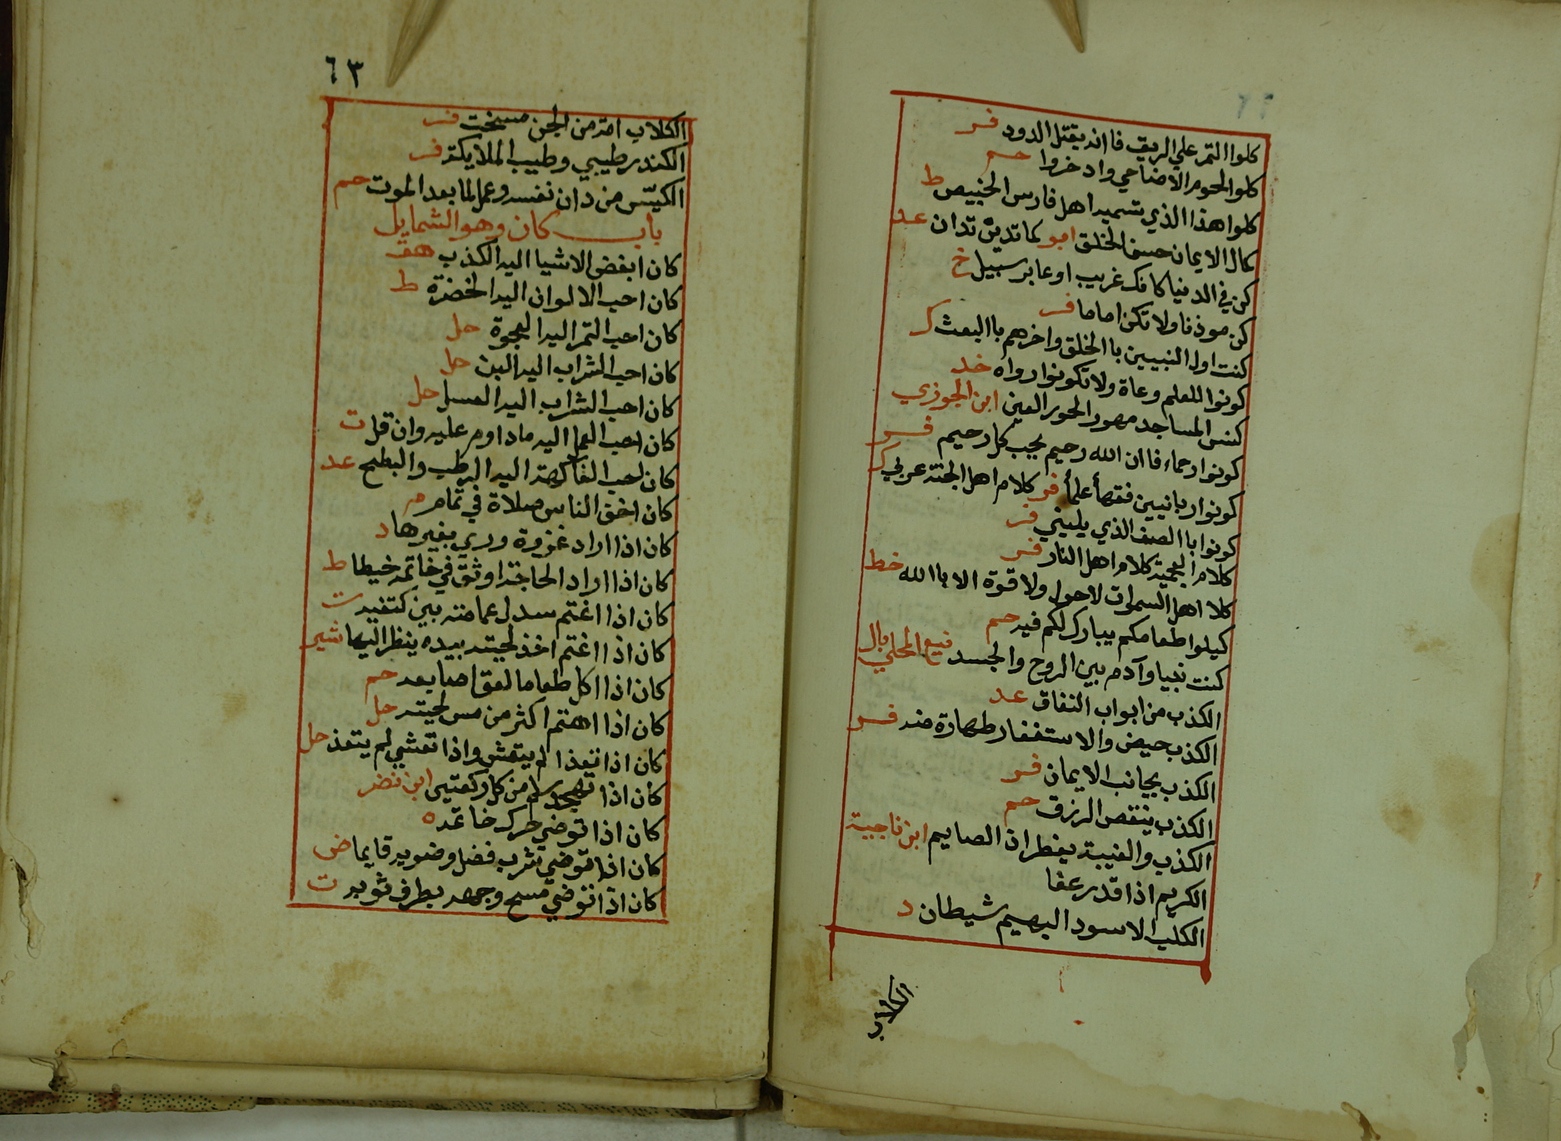 كلوا التمر علي الريق فاانه يقتل الدود فر
كلوا لحوم الاضاحي وادخروا حم
كلوا هذا الذي تسميه اهل فارس الخبيص ط
كمال الايمان حسن الخلق ابو كما تدين تدان عد
كن في الدنيا كانك غريب اوعابر سبيل خ
كن موذنا ولا تكن اماما فر
كنت اول النبيين باالخلق واخرهم باالبعث ك
كونوا للعلم وعاة ولا تكونوا رواه خد
كنس المساجد مهور الحور العين ابن الجوزي
كونوا رحماء فاان الله رحيم يحب كل رحيم فر
كونوا ربانيين فقهاً علماً فر كلام اهل الجنة عربي ك
كونوا باالصف الذي يليني فر
كلام العجمية كلام اهل النار فر
كلا اهل السموات لاحول ولا قوة الا باالله خط
كيلوا طعامكم يبارك لكم فيه حم
كنت نبيا وآدم بين الروح والجسد
الكذب من ابواب النفاق عد
الكذب حيض والاستغفار طهارة منه فر
الكذب يجانب الايمان فر
الكذب ينقص الرزق حم
الكذب والغيبة يفطران الصايم ابن ناجية
الكريم اذا قدر عفا
الكلب الاسود البهيم شيطان د
الكلاب
٦٣
الكلاب امة من الجن مسخت فر
الكندر طيبي وطيب الملايكة فر
الكيّس من دان نفسه وعمل لما بعد الموت حم
باب كان وهو الشمايل
كان ابغض الاشيا اليه الكذب هق
كان احب الالوان اليه الخضرة ط
كان احب التمر اليه العجوة حل
كان احب الشراب اليه البن حل
كان احب الشراب اليه العسل حل
كان احب العمل اليه ماداوم عليه وان قل ت
كان احب الفاكهة اليه الرطب والبطيح عد
كان اخف الناس صلاة في تمام م
كان اذا اراد غزوة وري بغيرها د
كان اذا اراد الحاجة اوثق في خاتمه خيطا ط
كان اذا اغتم سدل عمامته بين كتفيه ت
كان اذا اغتم اخذ لحيته بيده ينظر اليها شير
كان اذا اكل طعاما لعق اصابعه حم
كان اذا اهتم اكثر من مس لحيته حل
كان اذا تغذا لم يتعش واذا تعشي لم يتغذ حل
كان اذا تهجد سلم من كل ركعتين ابن نضر
كان اذا توضي حرك خاتمه ه
كان اذا توضي شرب فضل وضويه قايما ض
كان اذا توضي مسح وجهه بطرف ثوبه ت